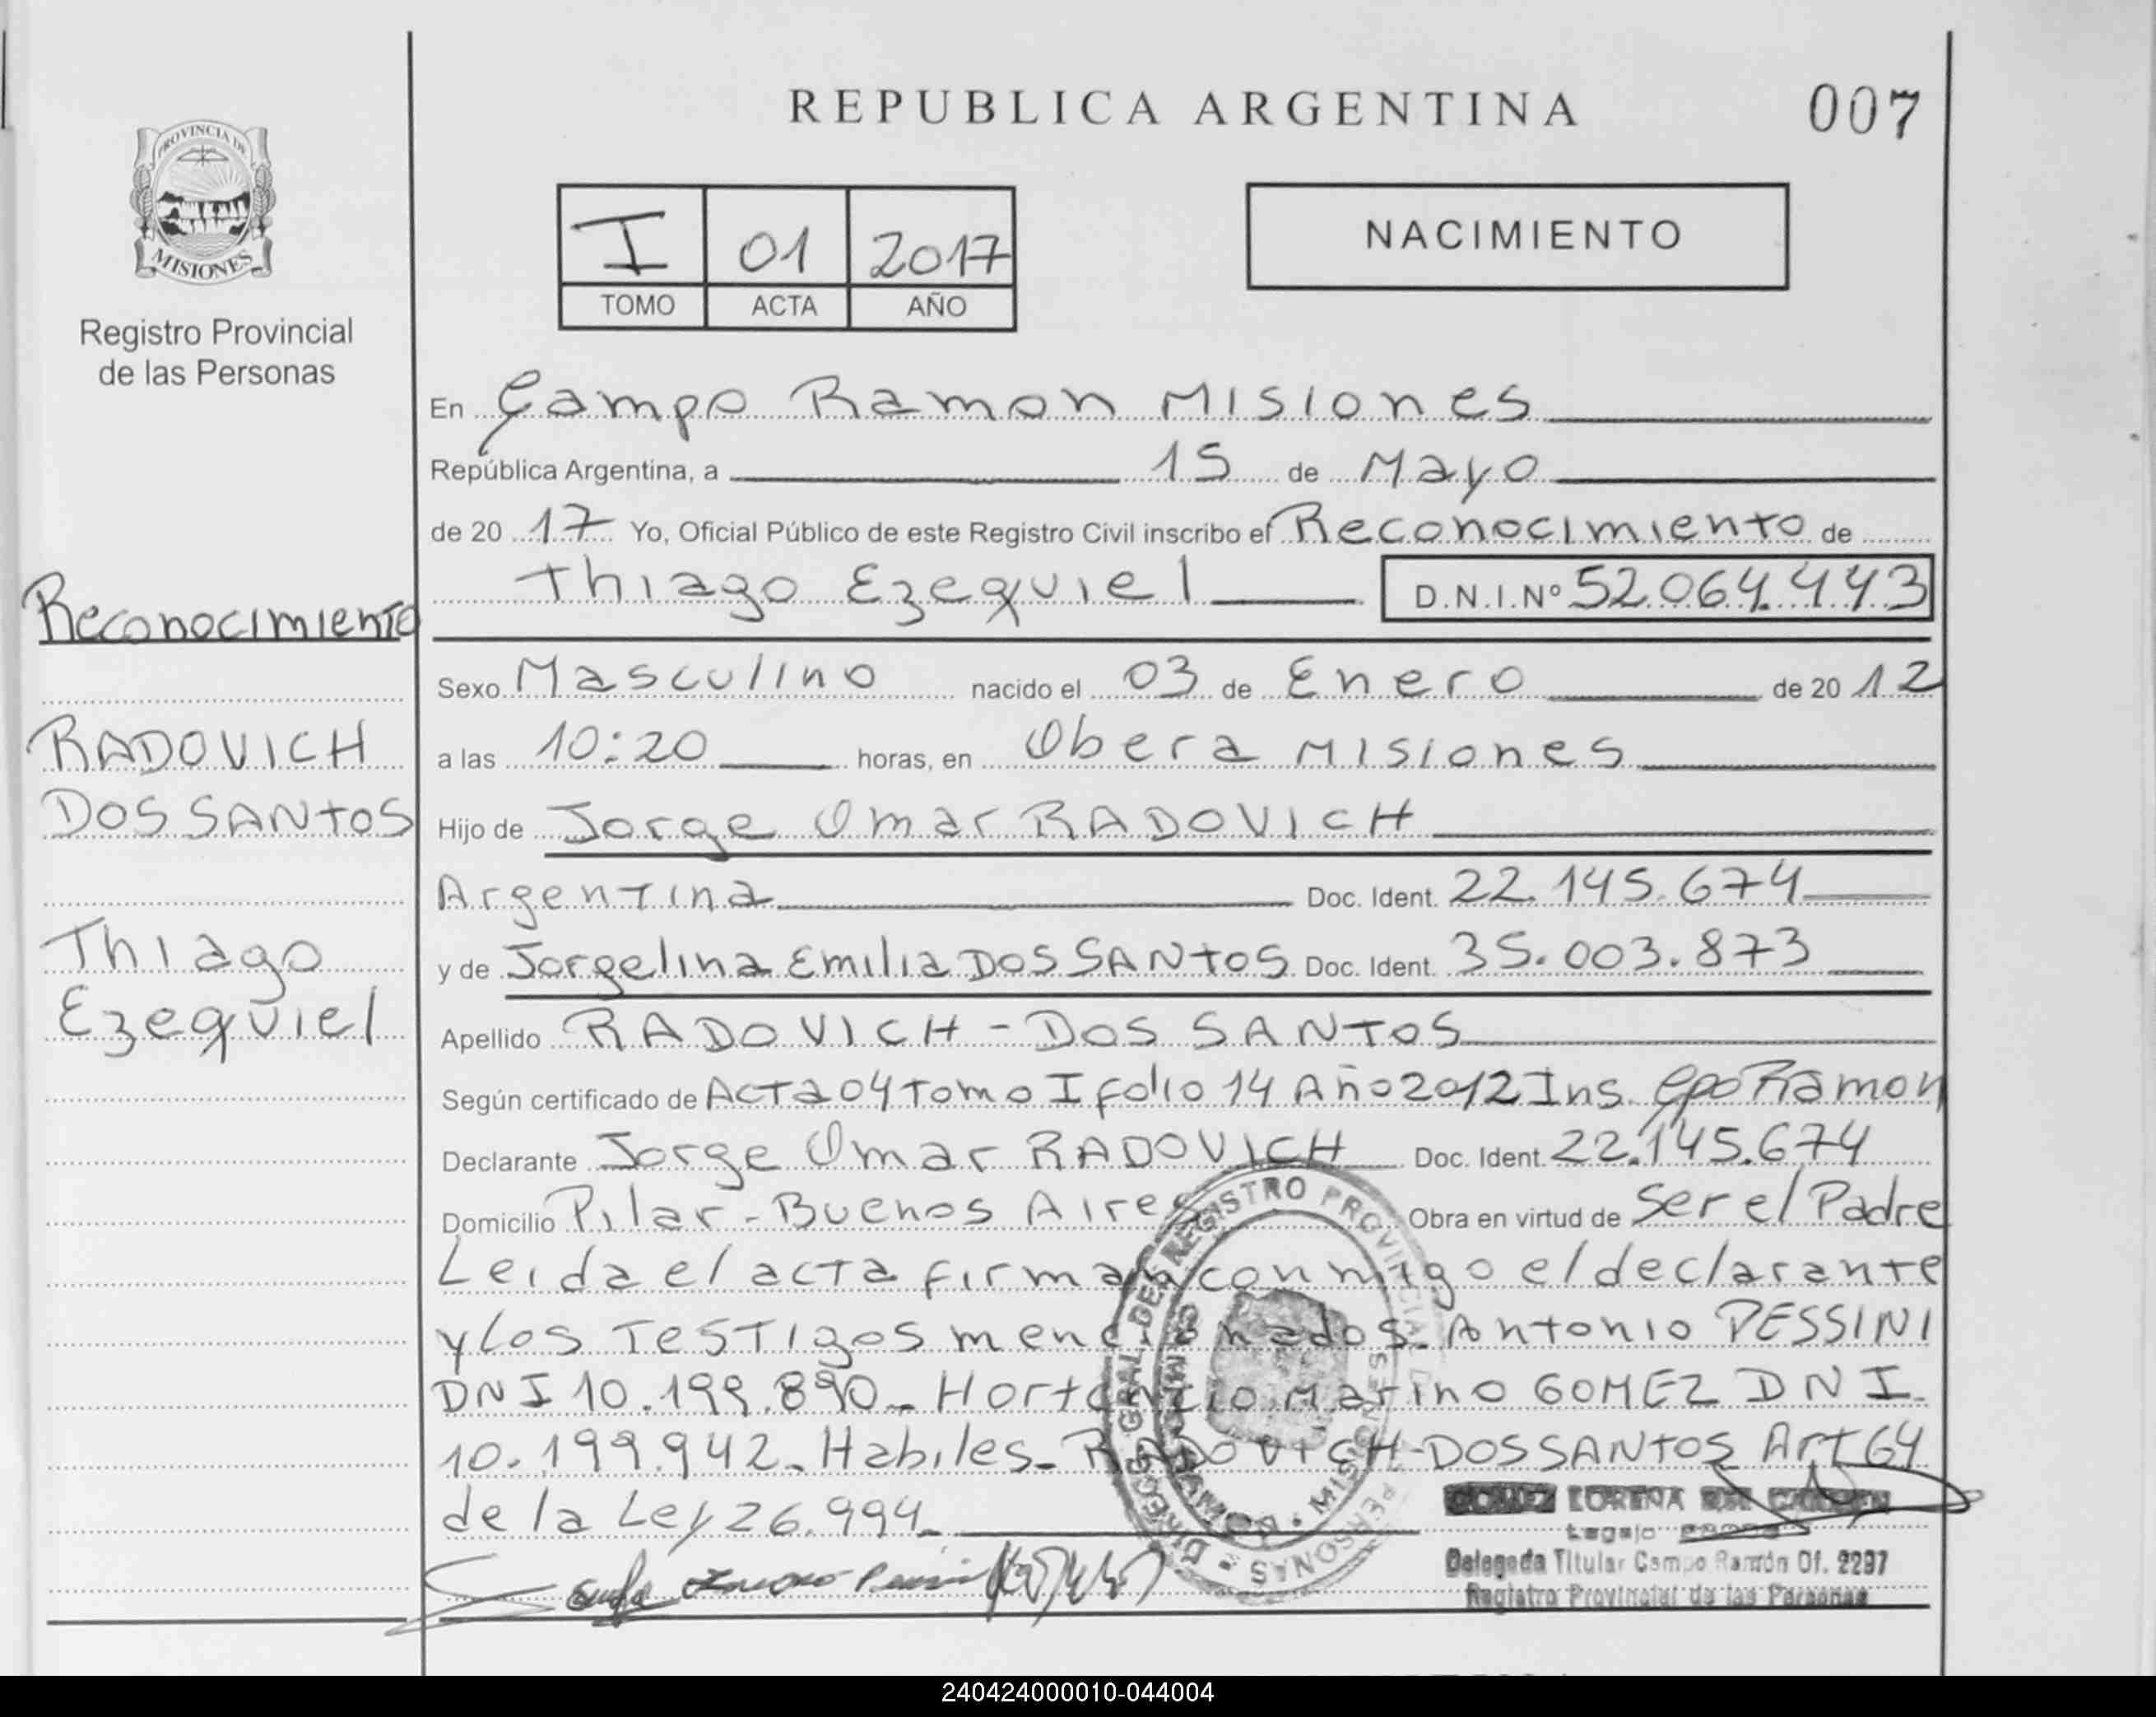 REPUBLICA ARGENTINA
007
PROVINCIA DE
MISIONES
Registro Provincial
de las Personas
I 01 2017
TOMO ACTA AÑO
NACIMIENTO
En Campo Ramon Misiones
República Argentina, a 15 de Mayo
de 20 17 Yo, Oficial Público de este Registro Civil inscribo el Reconocimiento de
Thiago Ezequiel D.N.I.Nº 52.064.443
Reconocimiento
RADOVICH
DOS SANTOS
Thiago
Ezequiel
Sexo Masculino nacido el 03 de Enero de 20 12
a las 10:20 horas, en Obera Misiones
Hijo de Jorge Omar RADOVICH
Argentina Doc. Ident. 22.145.674
y de Jorgelina Emilia DOS SANTOS Doc. Ident. 35.003.873
Apellido RADOVICH - DOS SANTOS
Según certificado de Acta 04 Tomo I folio 14 Año 2012 Ins. Cpo Ramon
Declarante Jorge Omar RADOVICH Doc. Ident. 22.145.674
Domicilio Pilar - Buenos Aires Obra en virtud de Ser el Padre
Leida el acta firman conmigo el declarante
y los Testigos mencionados. Antonio PESSINI
DNI 10.199.890 - Hortencio Marino GOMEZ DNI
10.199.942 - Habiles - RADOVICH - DOS SANTOS Art 64
de la Ley 26.994 -
DIRECC. GRAL. DEL REGISTRO PROVINCIAL DE LAS PERSONAS
MISIONES
GOMEZ LORENA DEL CARMEN
Legajo
Delegada Titular Campo Ramón Of. 2297
Registro Provincial de las Personas
240424000010-044004